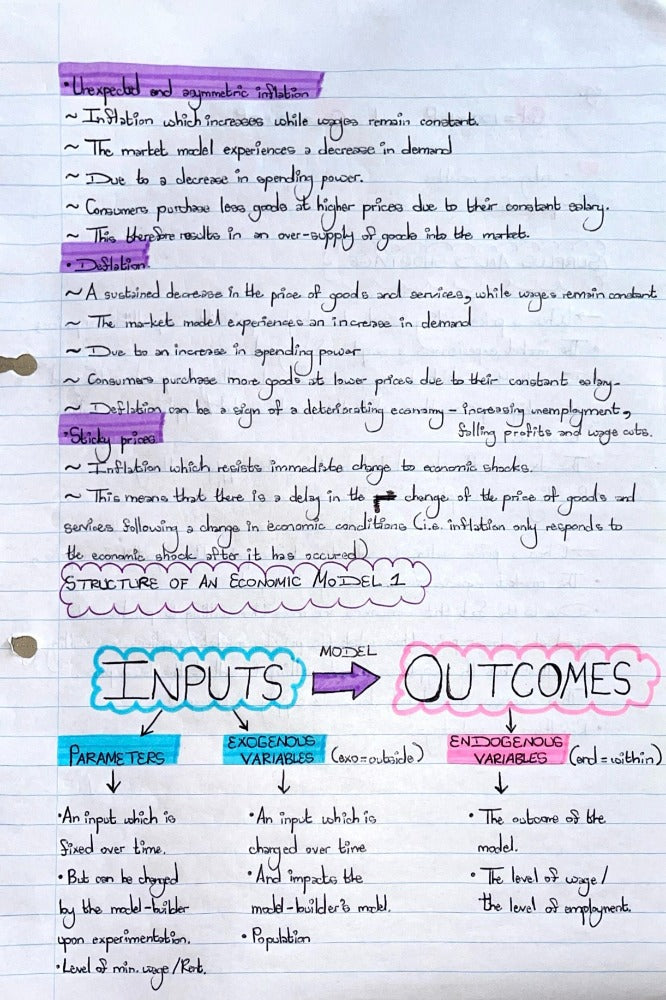 • Unexpected and asymmetric inflation
~ Inflation which increases while wages remain constant.
~ The market model experiences a decrease in demand
~ Due to a decrease in spending power.
~ Consumers purchase less goods at higher prices due to their constant salary.
~ This therefore results in an over-supply of goods into the market.
• Deflation
~ A sustained decrease in the price of goods and services, while wages remain constant
~ The market model experiences an increase in demand
~ Due to an increase in spending power
~ Consumers purchase more goods at lower prices due to their constant salary.
~ Deflation can be a sign of a deteriorating economy - increasing unemployment,
falling profits and wage cuts.
• Sticky prices
~ Inflation which resists immediate change to economic shocks.
~ This means that there is a delay in the change of the price of goods and
services following a change in economic conditions (i.e. inflation only responds to
the economic shock after it has occured)
STRUCTURE OF AN ECONOMIC MODEL 1
INPUTS MODEL OUTCOMES
PARAMETERS
• An input which is
fixed over time.
• But can be changed
by the model-builder
upon experimentation.
• Level of min. wage/Rent.
EXOGENOUS
VARIABLES (exo=outside)
• An input which is
changed over time
• And impacts the
model-builder's model.
• Population
ENDOGENOUS
VARIABLES (end=within)
• The outcome of the
model.
• The level of wage/
the level of employment.